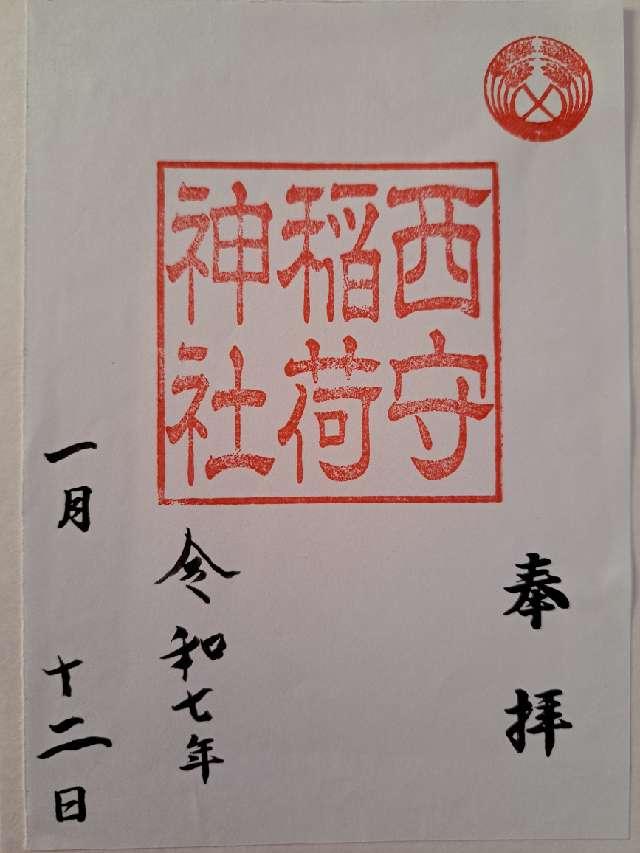 奉拝
西守
稲荷
神社
令和七年
一月十二日